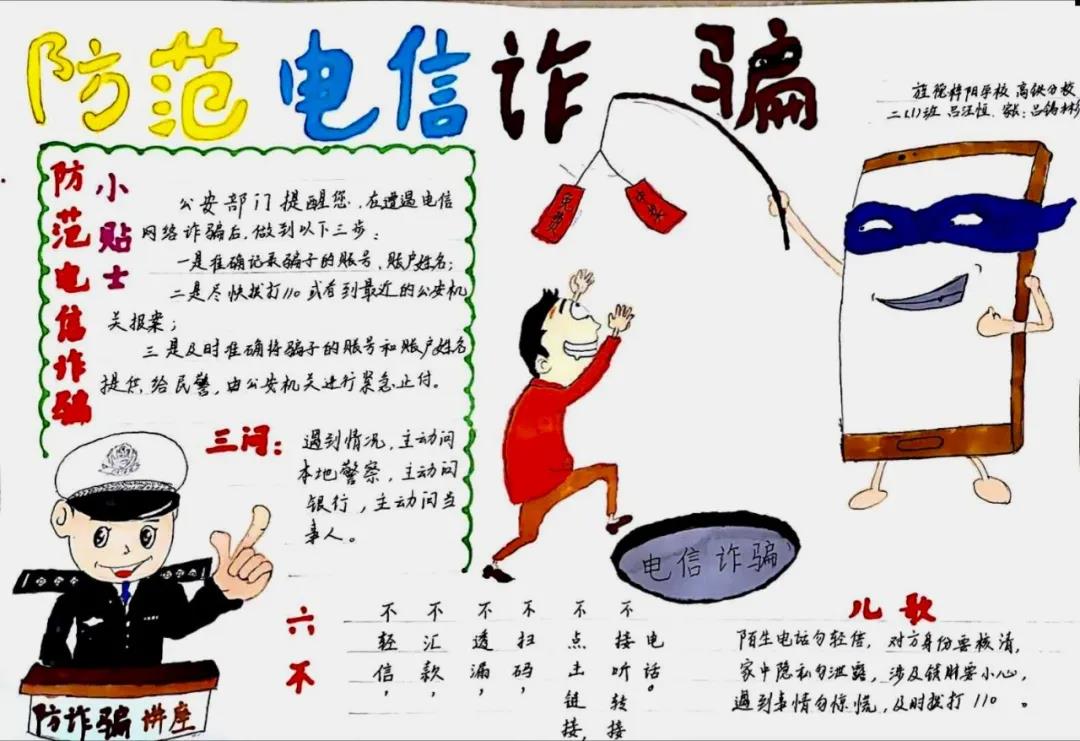 防范电信诈骗
二(1)班
防范电信诈骗
小贴士
公安部门提醒您,在遭遇电信
网络诈骗后,做到以下三步:
一是准确记录骗子的账号、账户姓名;
二是尽快拨打110或者到最近的公安机
关报案;
三是及时准确将骗子的账号和账户姓名
提供给民警,由公安机关进行紧急止付。
三问:
遇到情况,主动问
本地警察,主动问
银行,主动问当
事人。
免费
中奖
电信诈骗
防诈骗讲座
六不
不轻信,
不汇款,
不透漏,
不扫码,
不点击链接,
不接听转接
电话。
儿歌
陌生电话勿轻信,对方身份要核清,
家中隐私勿泄露,涉及钱财要小心,
遇到事情勿惊慌,及时拨打110。